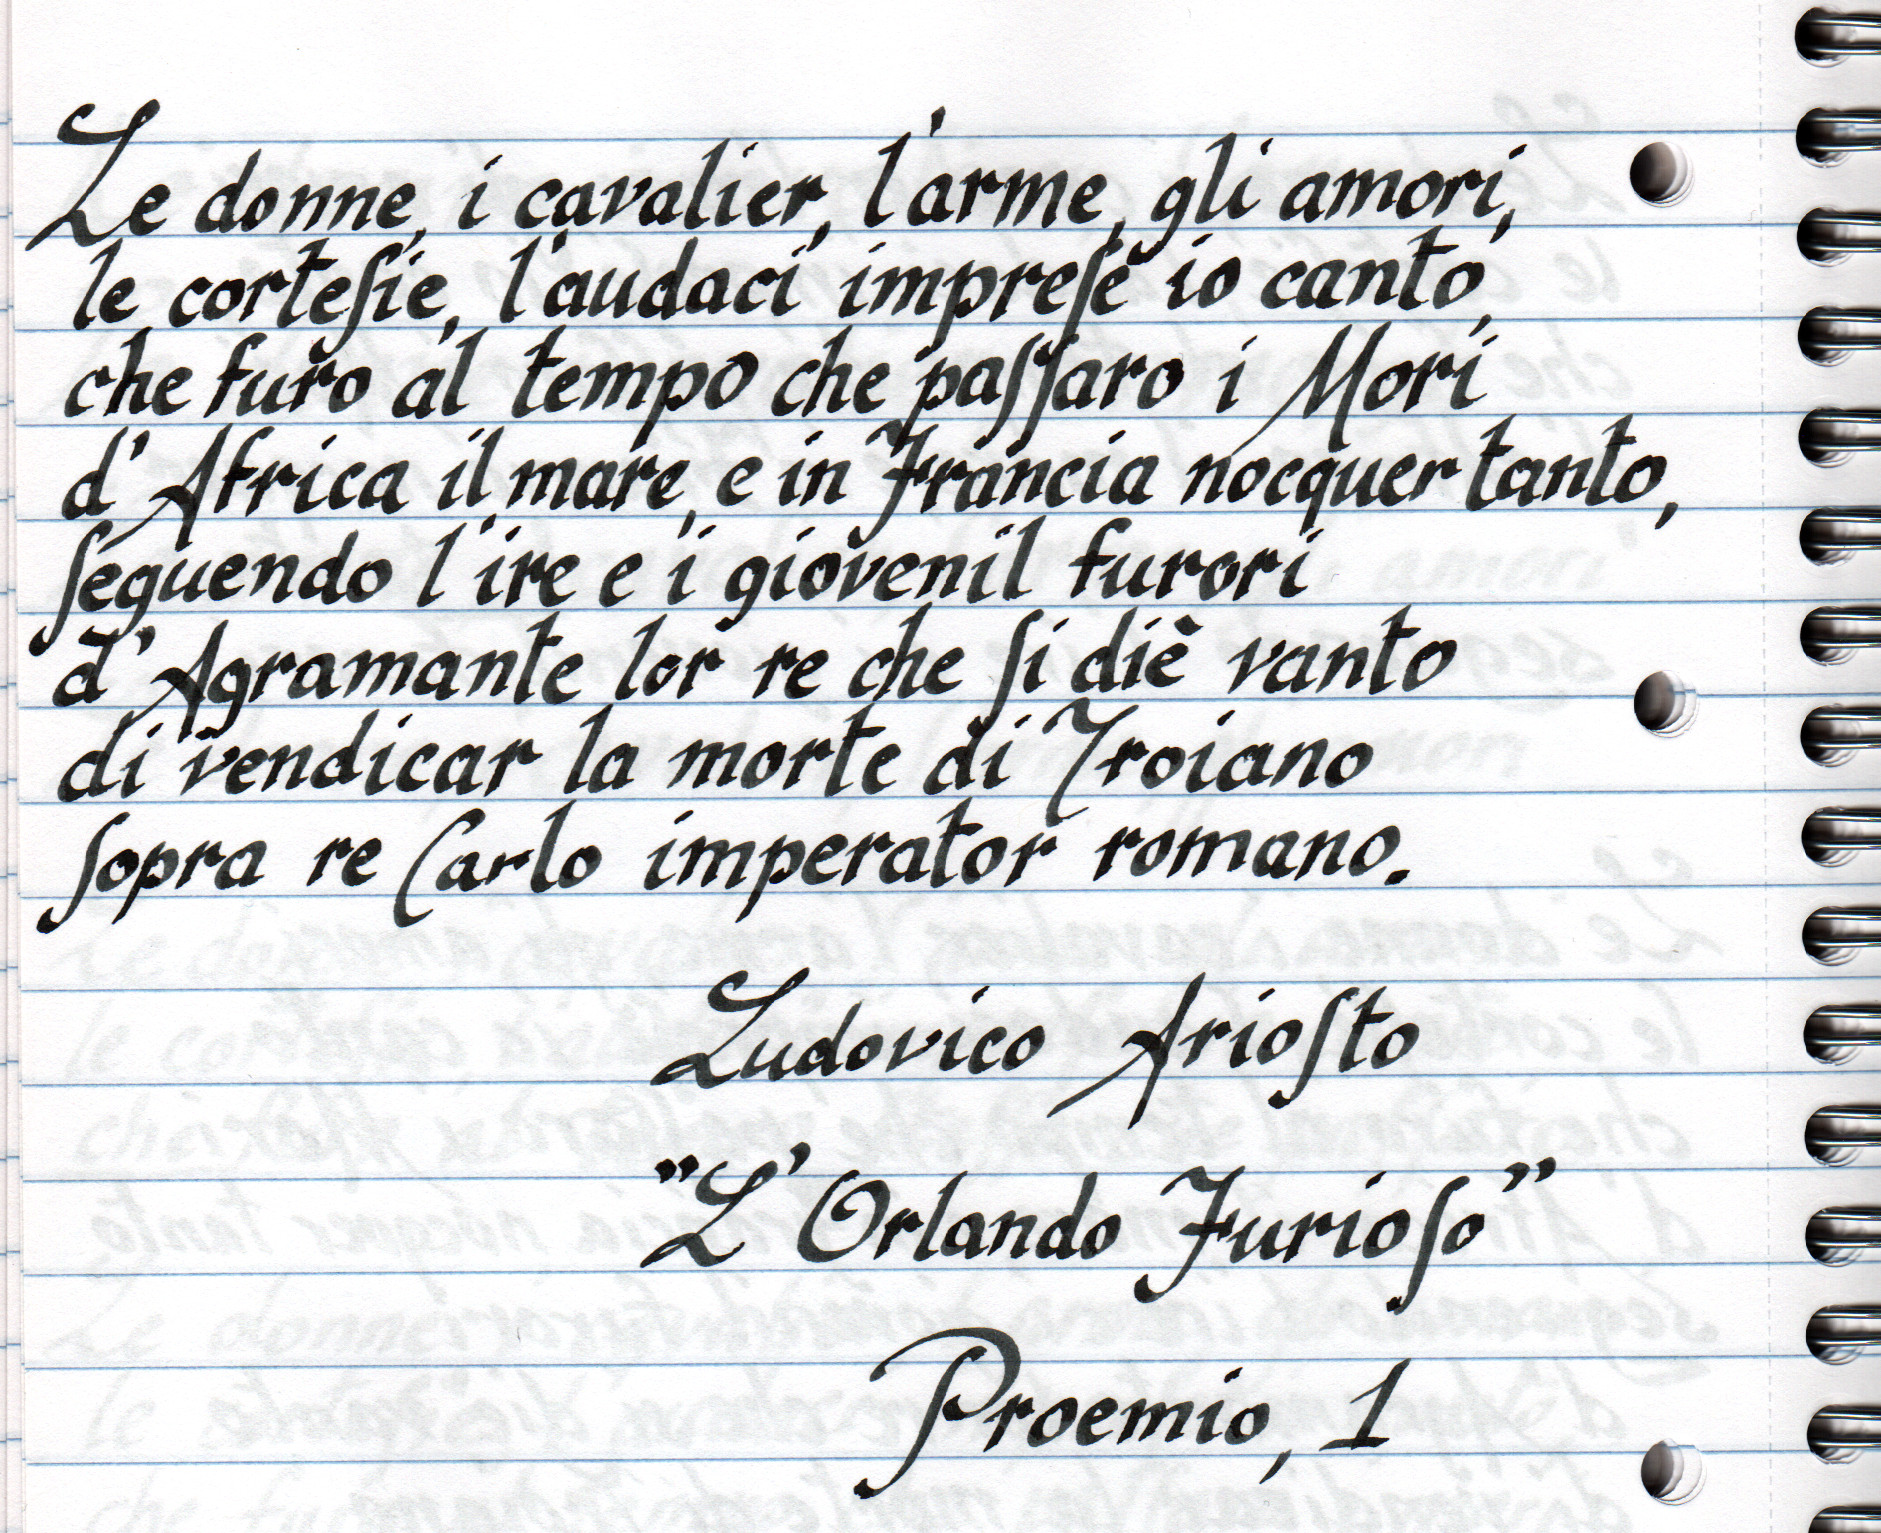 Le donne, i cavalier, l'arme, gli amori,
le corteſie, l'audaci impreſe io canto,
che furo al tempo che paſſaro i Mori
d'Africa il mare, e in Francia nocquer tanto,
ſeguendo l'ire e i giovenil furori
d'Agramante lor re che ſi diè vanto
di vendicar la morte di Troiano
ſopra re Carlo imperator romano.
Ludovico Arioſto
"L'Orlando Furioſo"
Proemio, 1